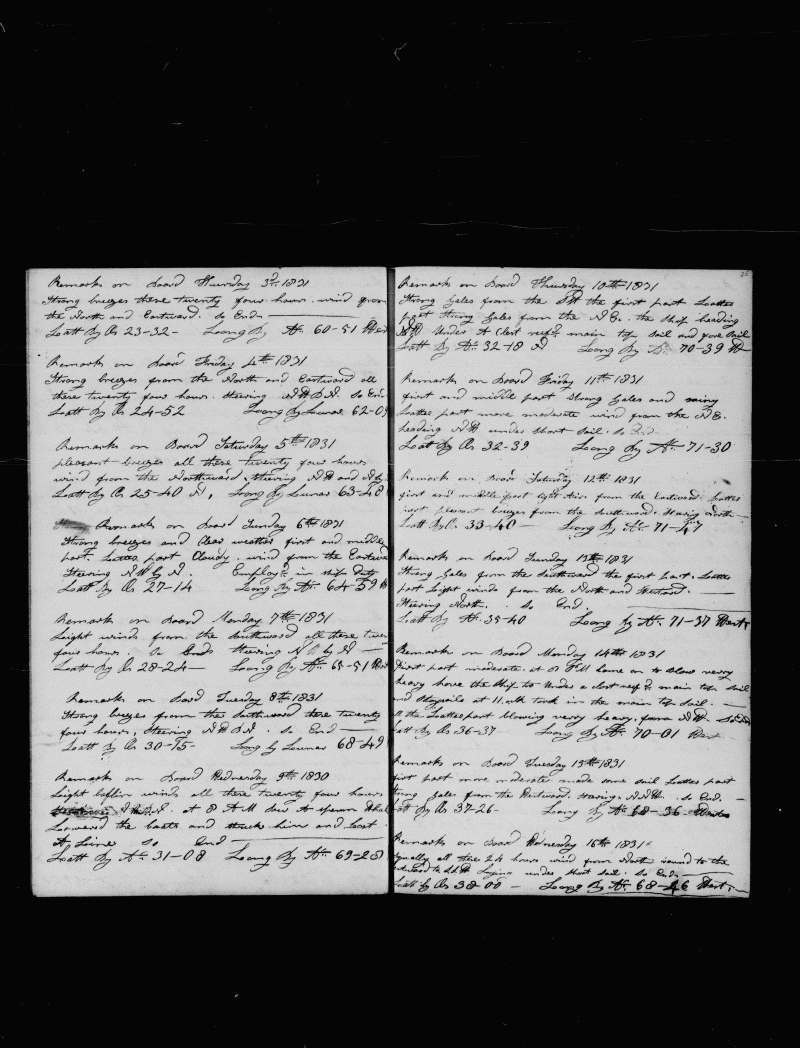 Remarks on Board Thursday 3d 1831
Strong breezes these twenty four hours. wind from
the North and Eastward. So Ends
Latt By O 23-32- Loong By Ar 60-51 West
Remarks on Board Friday 4th 1831
Strong breezes from the North and Eastward all
these twenty four hours. Steering N W B N. So Ends
Latt By O 24-52 Loong By Lunar 62-09
Remarks on Board Saturday 5th 1831
pleasant breezes all these twenty four hours
wind from the Northward. Steering N W and N by
Latt By O 25-40 N, Loong By Lunar 63-48
Remarks on Board Sunday 6th 1831
Strong breezes and Clear weather first and middle
part. Latter part Cloudy. wind from the Eastward
Steering N W by N. Employd in Ship Duty
Latt By O 27-14 Loong By Ar 64-59 W
Remarks on Board Monday 7th 1831
Light winds from the Southward all these twen
four hours. So Ends Steering N W by N
Latt By O 28-24 Loong By Ar 65-51 West
Remarks on Board Tuesday 8th 1831
Strong breezes from the Southward these twenty
four hours, Steering N W B N. So End
Latt By O 30-15- Long by Lunar 68-49
Remarks on Board Wednesday 9th 1830
Light baffling winds all these twenty four hours
N W B N. at 8 A M saw A sperm Whal
Lowered the boats and struck him and Lost
A Line So End
Latt By Ar 31-08 Loong By Ar 69-28
26
Remarks on Board Thursday 10th 1831
Strong Gales from the SW the first part Latter
part Strong Gales from the N E. the Ship heading
N W Under A Clost reefd main top sail and fore sail
Latt By Ar 32-18 N Loong By Ar 70-39 W
Remarks on Board Friday 11th 1831
first and middle part Strong Gales and rainy
Latter part more moderate wind from the N E.
heading N W under short sail. So End
Latt By O 32-39 Loong By Ar 71-30
Remarks on Board Saturday 12th 1831
first and middle part light Airs from the Eastward Latter
part pleasant breezes from the Southward. Steering North
Latt By O. 33-40 Loong By Ar 71-47
Remarks on Board Sunday 13th 1831
Strong Gales from the Southward the first part. Latter
part Light winds from the North and Westward.
Steering North. So End.
Latt By Ar 35-40 Loong By Ar 71-37 West
Remarks on Board Monday 14th 1831
First part moderate. at 8 P M Came on to Blow verry
heavy hove the Ship to Under a Clost reefd main top sail
and Stay sails at 11. oclk took in the main top sail.
All the Latter part blowing verry heavy. from N W. So End
Latt By O 36-37 Loong By Ar 70-01 West.
Remarks on Board Tuesday 15th 1831
first part more moderate made some sail Latter part
Strong Gales from the Westward. Steering N N W. So End.
Latt By O 37-26- Loong By Ar 68-36 West
Remarks on Board Wednesday 16th 1831
Squally all these 24 hours wind from North round to the
Lying under short sail. So End
Latt By O 38-00 - Loong By Ar 68-46 West.